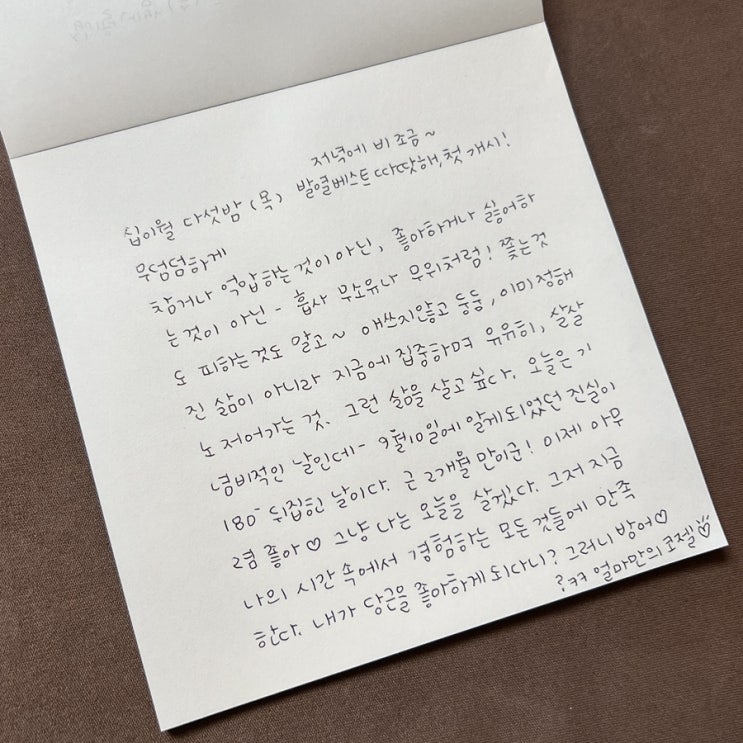 저녁에 비 조금~
십이월 다섯밤 (목) 발열베스트 따땃해, 첫 개시!
무덤덤하게
참거나 억압하는 것이 아닌, 좋아하거나 싫어하
는 것이 아닌 - 흡사 무소유나 무위처럼! 쫓는 것
도 피하는 것도 말고~ 애쓰지않고 둥둥, 이미 정해
진 삶이 아니라 지금에 집중하며 유유히, 살살
노 저어가는 것. 그런 삶을 살고 싶다. 오늘은 기
념비적인 날인데- 9월10일에 알게되었던 진실이
180° 뒤집힌 날이다. 근 2개월 만이군! 이제 아무
렴 좋아♡ 그냥 나는 오늘을 살겠다. 그저 지금
나의 시간 속에서 경험하는 모든 것들에 만족
한다. 내가 당근을 좋아하게 되다니? 그러니 방어♡
?ㅋㅋ 얼마만의 코젤♡